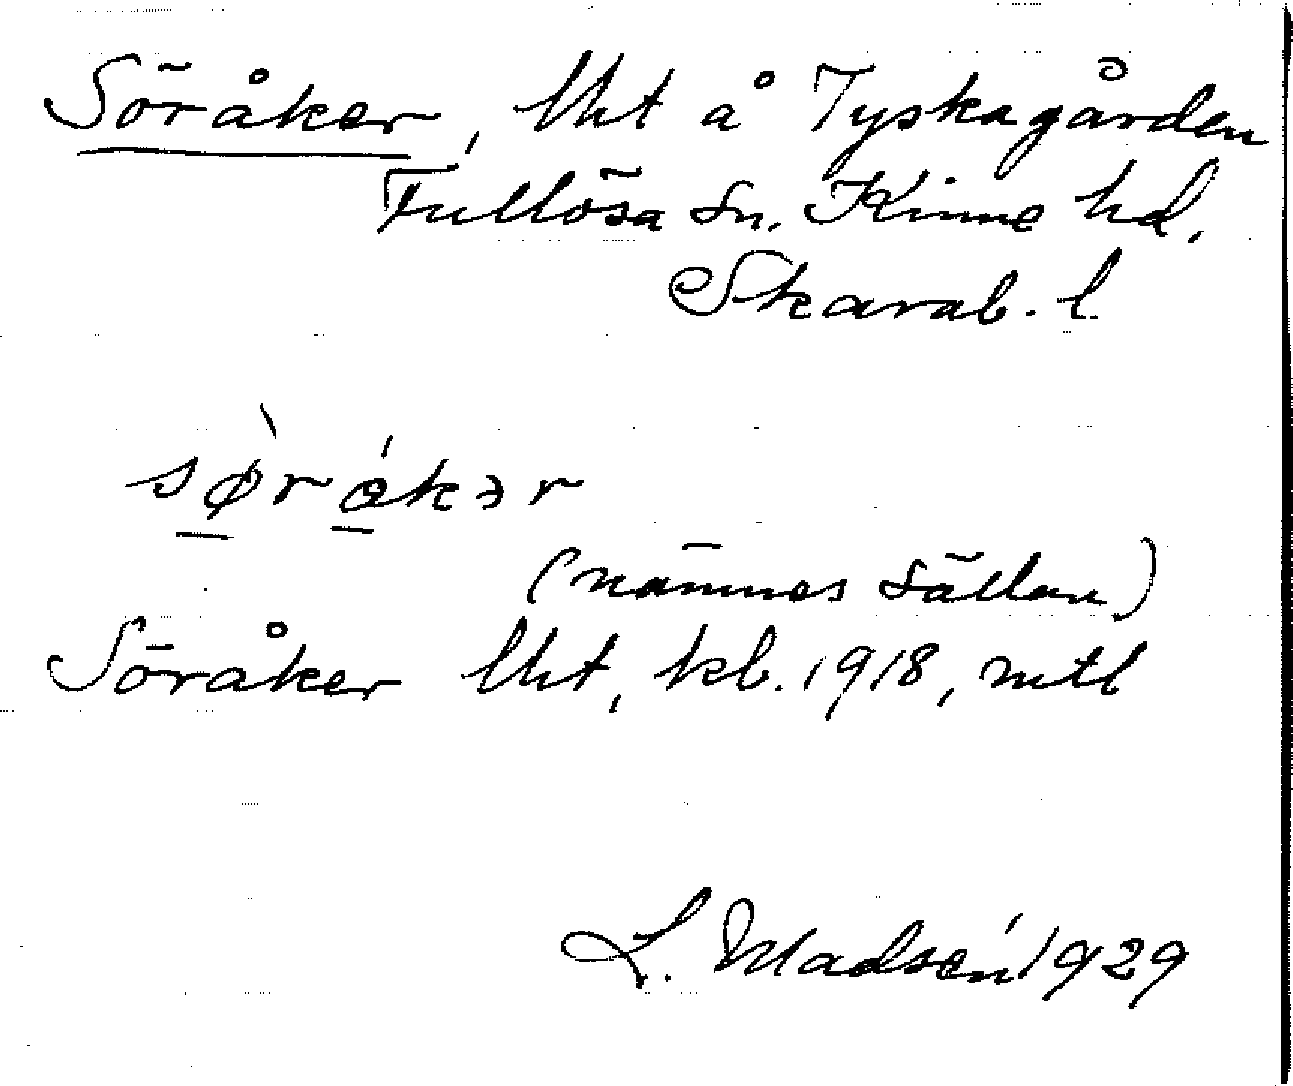 Söråker, lht å Tyskagården
Fullösa sn. Kinne hd.
Skarab. l.
sø̀råkər
(nämnes sällan)
Söråker lht, kb. 1918, mtl
L. Madsén 1929